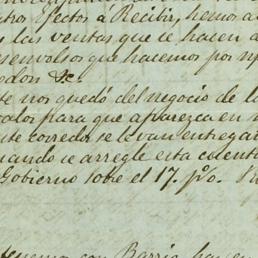 tros efectos á Recibir, hemos a
y las ventas que se hacen d
esenvolsos que hacemos por n
edon &c
te nos quedó del negocio de la
calor para que aparezca en n
ste corredor se le van entregar
uando se arregle esta cuenta
Gobierno sobre el 17. p%.
tenemos con Barrio, hay en